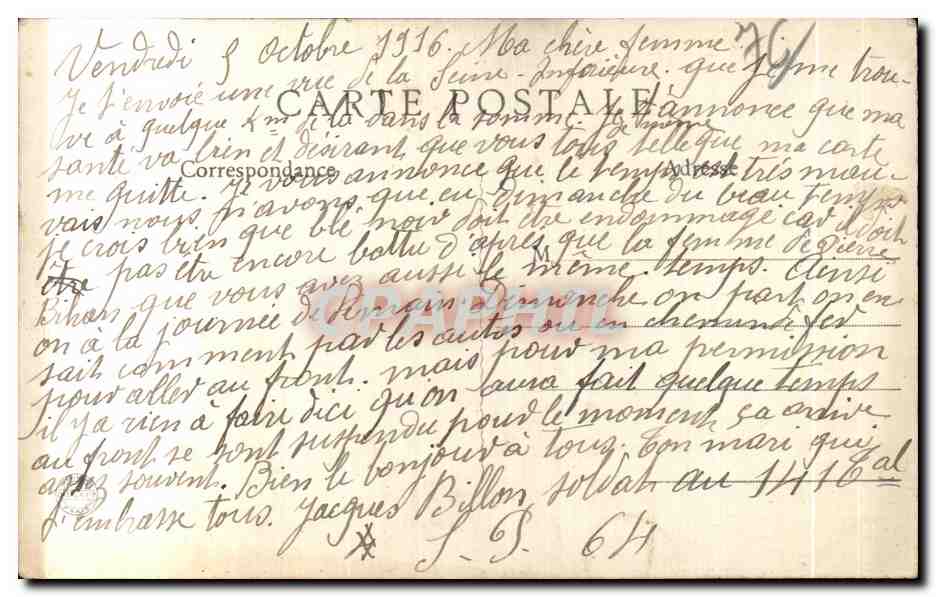 Vendredi 5 octobre 1916. Ma chère femme.
76
Je t'envoie une vue de la Seine-Inférieure. que je me trou-
CARTE POSTALE
ve à quelque Km de là dans la somme. Je t'annonce que ma
santé va bien et désirant que vous tous de même telle que ma carte
Correspondance
Adresse
me quitte. Je vous annonce que le temps est très mau-
vais nous n'avons que eu dimanche du beau temps
je crois bien que blé noir doit être endommagé car il doit
être pas être encore battu d'après que la femme de Pierre
M
Bihan que vous avez aussi le même temps. Ainsi
on à la journée de Demain. Dimanche on part on en
sait comment par les autos ou en chemin de fer
pour aller au front. mais pour ma permission
il y a rien à faire d'ici qu'on aura fait quelque temps
au front se sont suspendu pour le moment, ça arrive
assez souvent. Bien le bonjour à tous. Ton mari qui
t'embrasse tous. Jacques Billon, soldat au 141 Cal
S. P. 64